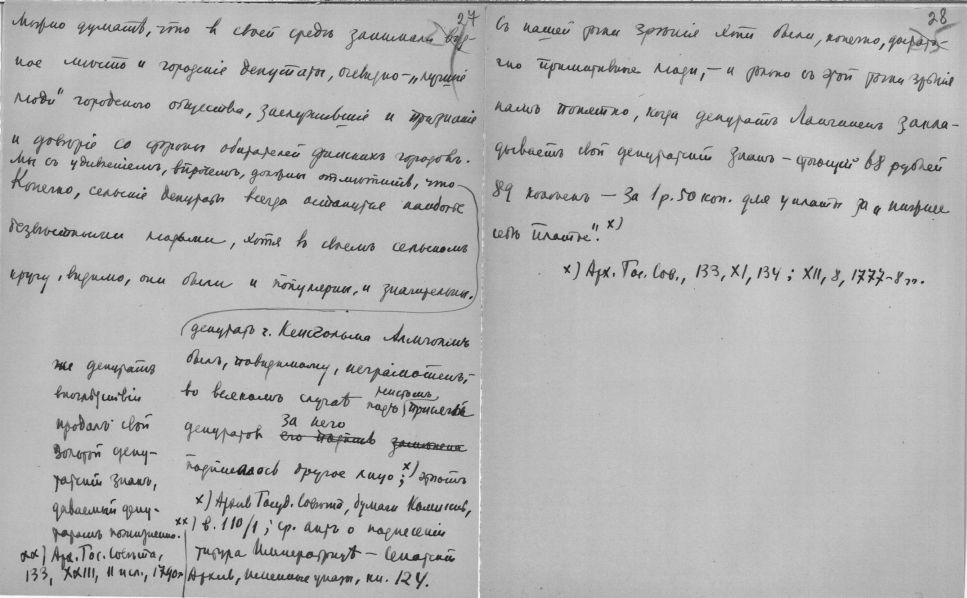 27
Можно думать, что в своей средѣ занимали вид-
ное мѣсто и городскіе депутаты, очевидно – „лучшіе
люди" городского общества, заслужившіе и признаніе
и довѣріе со стороны обитателей финскихъ городовъ.
Мы съ удивленіемъ, впрочемъ, должны отмѣтить, что
Конечно, сельскіе депутаты всегда останутся наиболѣе
безвѣстными людьми, хотя въ своемъ сельскомъ
кругу, видимо, они были и популярны, и значительны.
депутатъ г. Кексгольма
былъ, повидимому, неграмотенъ;
во всякомъ случаѣ подъ листомъ присяги
депутатов за него его подпись
подписалось другое лицо; х) этотъ
же депутатъ
впослѣдствіи
продалъ свой
золотой депу-
татскій знакъ,
даваемый депу-
татамъ пожизненно. хх)
х) Архив Госуд. Совѣта, бумаги Комиссіи,
в. 110/1; ср. актъ о поднесеніи
титула Императрицѣ – Сенатскій
Архив, именные указы, кн. 124.
хх) Арх. Гос. Совѣта,
133, XXIII, 11 исл., 1790 г.
28
Съ нашей точки зрѣнія хоти были, конечно, достато-
чно примитивные люди, – и только съ этой точки зрѣнія
намъ понятно, когда депутатъ закла-
дываетъ свой депутатскій знакъ – стоющій въ 8 рублей
89 копѣекъ – за 1 р. 50 коп. для уплаты за „нижнее
себѣ платье". х)
х) Арх. Гос. Сов., 133, XI, 134; XII, 8, 1777–8 гг.